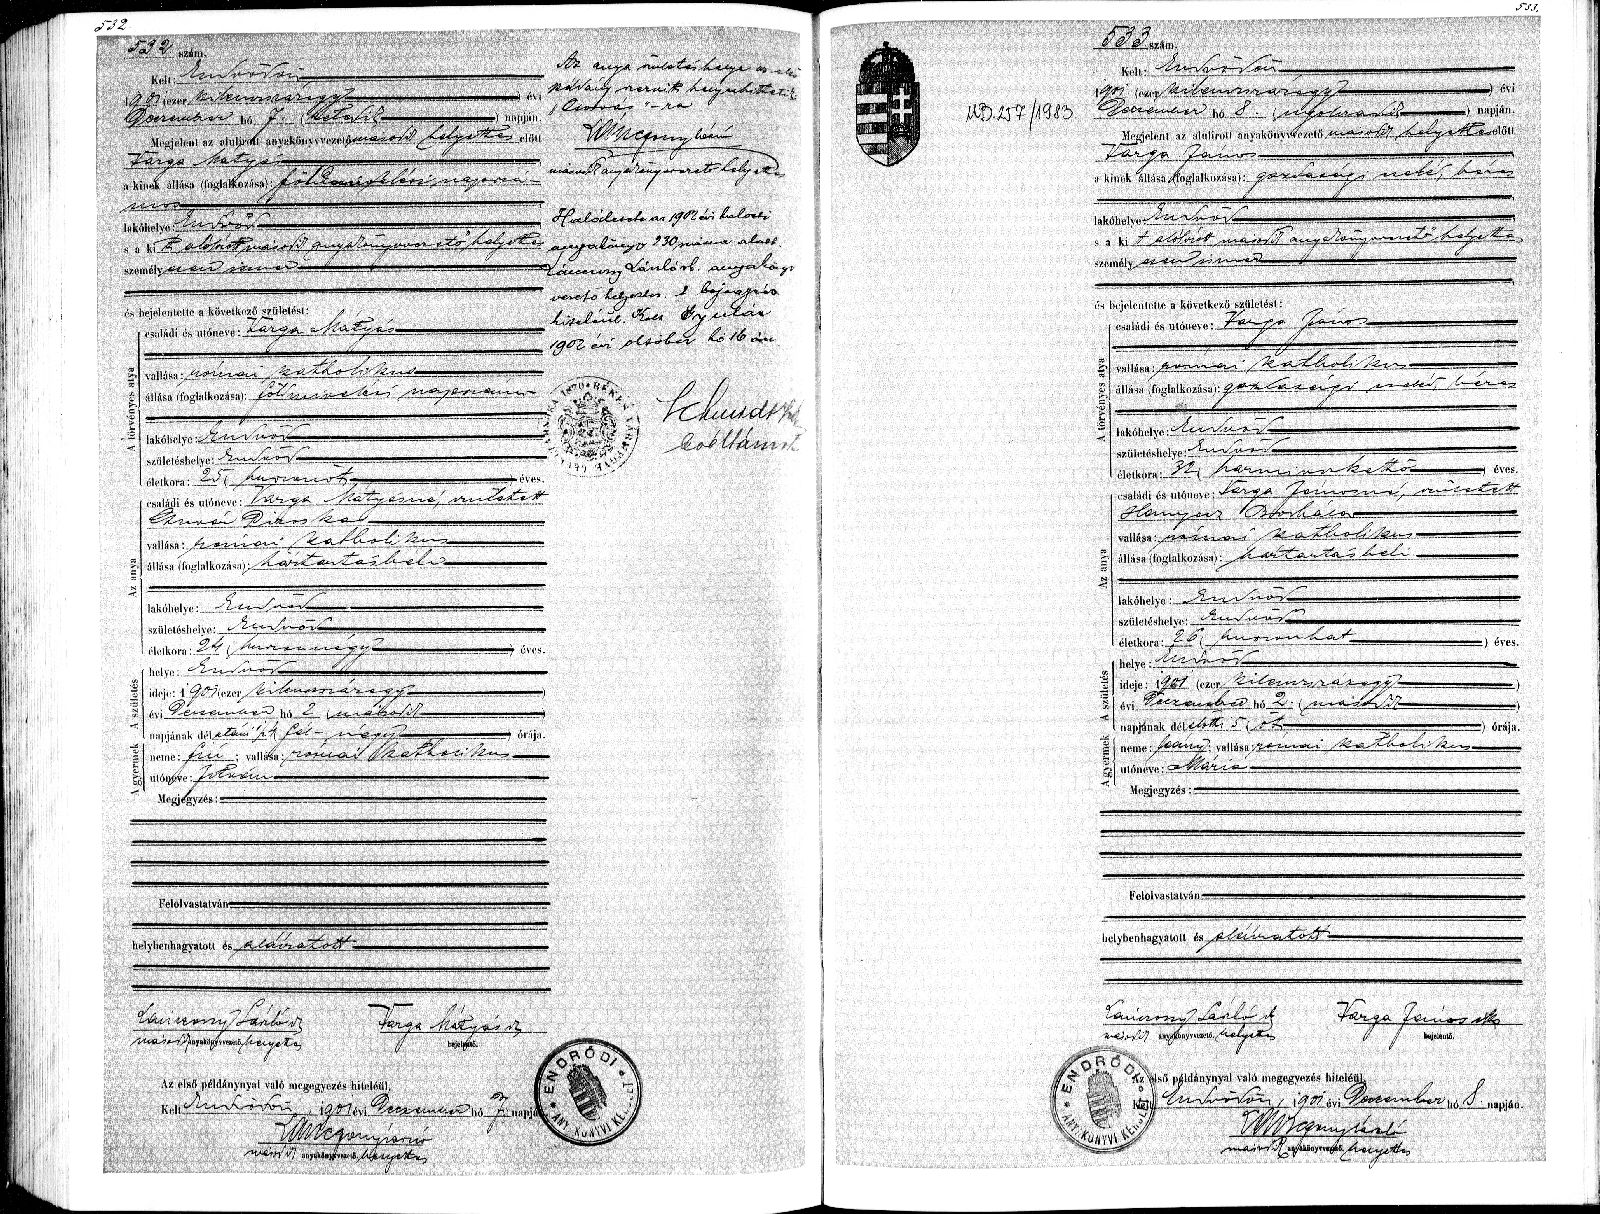 532
532 szám.
Kelt: Endrődön
1901 (ezer kilenczszázegy) évi
December hó 7. (hetedik) napján.
Megjelent az alulirott anyakönyvvezető másodk helyettes előtt
Varga Mátyás
a kinek állása (foglalkozása): földmívelési napszá-
mos
lakóhelye: Endrőd
s a kit alólirott másodk anyakönyvvezető helyettes
személyesen ismer
és bejelentette a következő születést:
A törvényes atya
családi és utóneve: Varga Mátyás
vallása: római katholikus
állása (foglalkozása): földmívelési napszámos
lakóhelye: Endrőd
születéshelye: Endrőd
életkora: 25 (huszonöt) éves.
Az anya
családi és utóneve: Varga Mátyásné, született
Piroska
vallása: római katholikus
állása (foglalkozása): háztartásbeli
lakóhelye: Endrőd
születéshelye: Endrőd
életkora: 24 (huszonnégy) éves.
A születés
helye: Endrőd
ideje: 1901 (ezer kilenczszázegy)
évi December hó 2 (második)
napjának dél utáni fél négy órája.
A gyermek
neme: fiú; vallása: római katholikus
utóneve: István
Megjegyzés:
Felolvastatván
helybenhagyatott és aláiratott
Lánczony László
Varga Mátyás
másodk anyakönyvvezető, helyettes
bejelentő.
Az első példánynyal való megegyezés hiteléül,
Kelt Endrődön, 1901 évi December hó 7. napján
Lánczony László
másodk anyakönyvvezető, helyettes
ENDRŐDI ANY.KÖNYVI KERÜLET
Az anya születés helye az első
példány szerint helyesbittetik
"Csorvás"-ra
Lánczony László
másodk anyakönyvvezető helyettes
Halálesete az 1902 évi halotti
anyakönyv 230 száma alatt
Lánczony László h. anyakönyv
vezető helyettes bejegyzés
hiteléül. Kelt Gyulán
1902 évi október hó 16 án
Schmidt
533.
533 szám.
Kelt: Endrődön
1901 (ezer kilenczszázegy) évi
December hó 8. (nyolczadik) napján.
Megjelent az alulirott anyakönyvvezető másodk helyettes előtt
Varga János
a kinek állása (foglalkozása): gazdasági cseléd, béres
lakóhelye: Endrőd
s a kit alólirott másodk anyakönyvvezető helyettes
személyesen ismer
és bejelentette a következő születést:
A törvényes atya
családi és utóneve: Varga János
vallása: római katholikus
állása (foglalkozása): gazdasági cseléd béres
lakóhelye: Endrőd
születéshelye: Endrőd
életkora: 32 (harminczkettős) éves.
Az anya
családi és utóneve: Varga Jánosné, született
Hanyecz Borbála
vallása: római katholikus
állása (foglalkozása): háztartásbeli
lakóhelye: Endrőd
születéshelye: Endrőd
életkora: 26 (huszonhat) éves.
A születés
helye: Endrőd
ideje: 1901 (ezer kilenczszázegy)
évi December hó 2. (második)
napjának dél előtti 5 (öt) órája.
A gyermek
neme: leány; vallása: római katholikus
utóneve: Mária
Megjegyzés:
Felolvastatván
helybenhagyatott és aláiratott
Lánczony László
Varga János
másodk anyakönyvvezető, helyettes
bejelentő.
Az első példánynyal való megegyezés hiteléül,
Kelt Endrődön, 1901 évi December hó 8. napján.
Lánczony László
másodk anyakönyvvezető, helyettes
ENDRŐDI ANY.KÖNYVI KERÜLET
257/1983